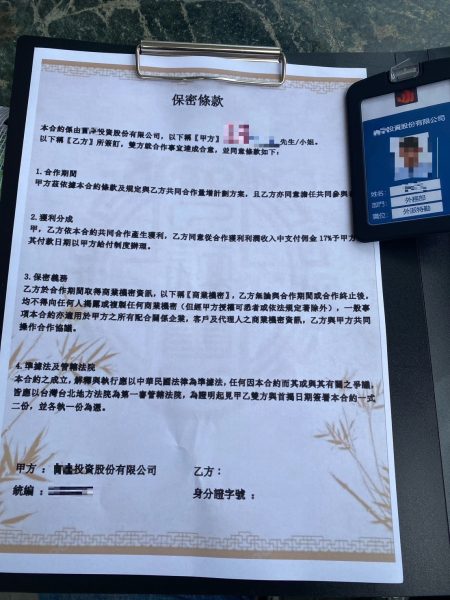 保密條款
本合約係由 投資股份有限公司，以下稱【甲方】 先生/小姐.
以下稱【乙方】所簽訂，雙方就合作事宜達成合意，並同意條款如下：
1.合作期間
甲方茲依據本合約條款及規定與乙方共同合作量增計劃方案，且乙方亦同意擔任共同參與
2.獲利分成
甲，乙方依本契約共同合作產生獲利，乙方同意從合作獲利利潤收入中支付佣金 17%予甲方
其付款日期以甲方給付制度辦理。
3.保密義務
乙方於合作期間取得商業機密資訊，以下稱【商業機密】，乙方無論與合作期間或合作終止後，
均不得向任何人揭露或複製任何商業機密（但經甲方授權可悉者或依法規定者除外），一般事
項本合約亦適用於甲方之所有配合關係企業，客戶及代理人之商業機密資訊，乙方與甲方共同
操作合作協議。
4.準據法及管轄法院
本合約之成立，解釋與執行應以中華民國法律為準據法，任何因本合約而其或與其有關之爭議，
皆應以台灣台北地方法院為第一審管轄法院，為證明起見甲乙雙方與首揭日期簽署本合約一式
二份，並各執一份為憑。
甲方： 投資股份有限公司 乙方：
統編： 身分證字號：
投資股份有限公司
姓名：
部門： 外務部
職位： 外派特勤